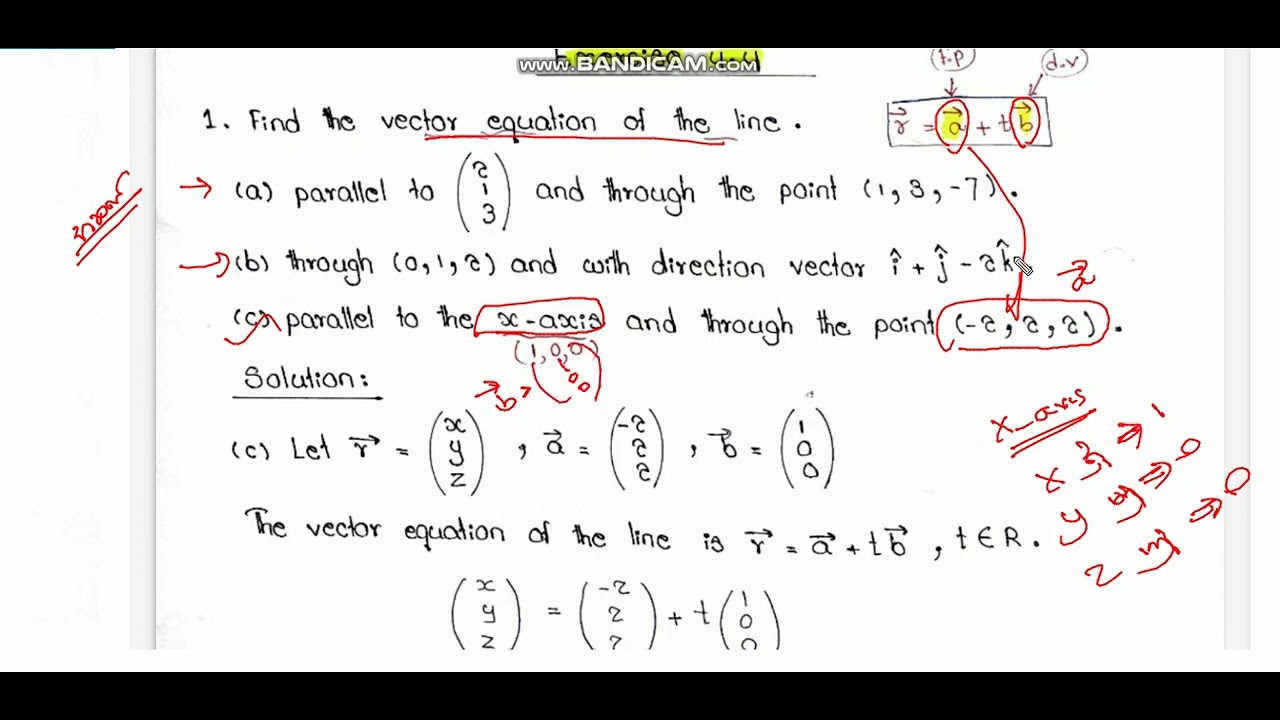 www.BANDICAM.com
t.p
d.v
1. Find the vector equation of the line.
r⃗ = a⃗ + t b⃗
→ (a) parallel to (2 1 3) and through the point (1, 3, -7).
→ (b) through (0, 1, 2) and with direction vector î + ĵ - 2k̂
a⃗
(c) parallel to the x-axis and through the point (-2, 2, 2).
(1, 0, 0)
Solution:
b⃗ = (1 0 0)
x-axis
(c) Let r⃗ = (x y z), a⃗ = (-2 2 2), b⃗ = (1 0 0)
x → 1
y → 0
z → 0
The vector equation of the line is r⃗ = a⃗ + t b⃗, t ∈ R.
(x y z) = (-2 2 2) + t (1 0 0)